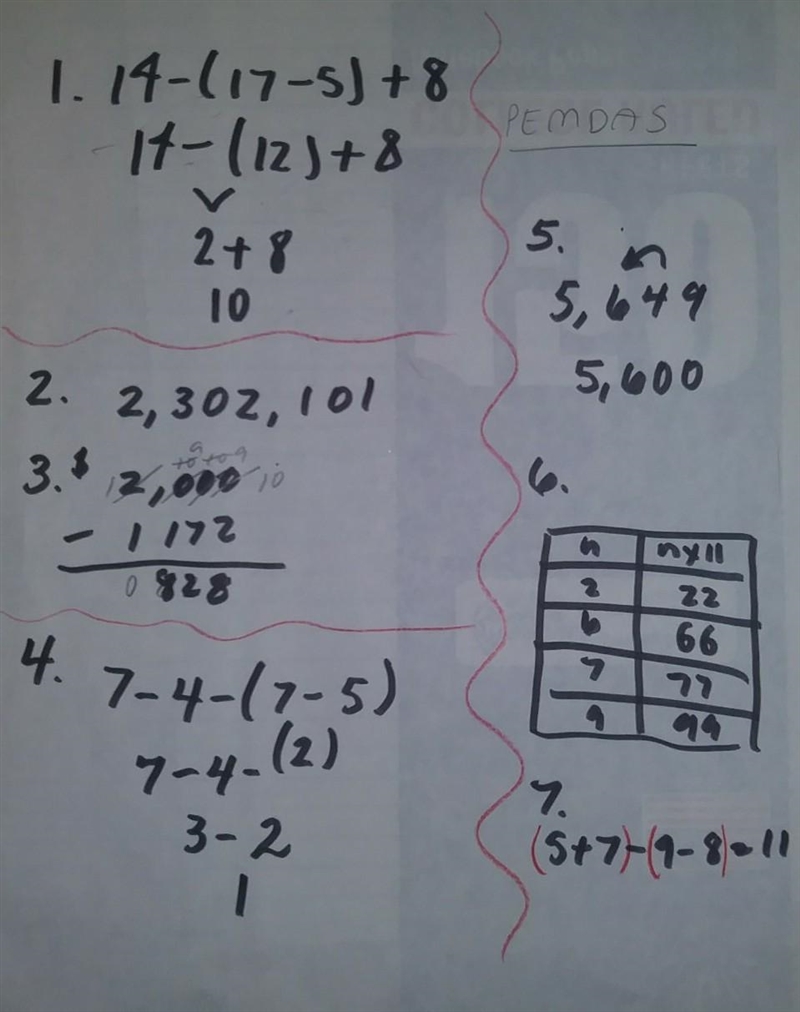 1. 14-(17-5)+8
14-(12)+8
2+8
10
2. 2,302,101
9
10 10 9
3. $ 12,000 10
- 1172
0828
4. 7-4-(7-5)
7-4-(2)
3-2
1
PEMDAS
5.
5,649
5,600
6.
n n×11
2 22
6 66
7 77
9 99
7.
(5+7)-(9-8)=11